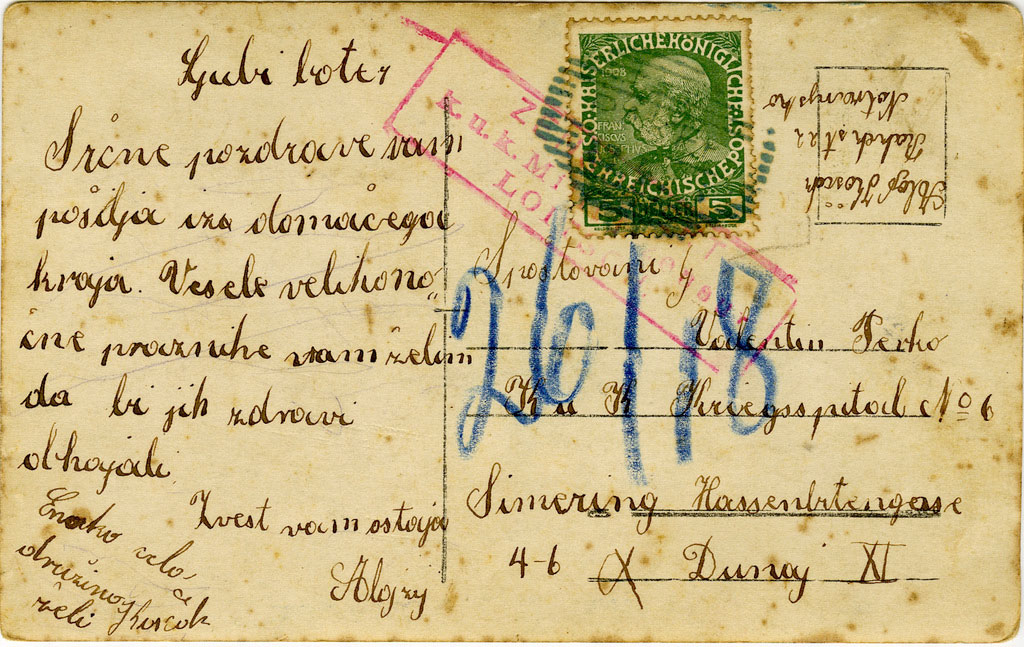 Ljubi boter
Srčne pozdrave vam
pošilja iza domačega
kraja. Vesele velikono„
čne praznike vam želim
da bi jih zdravi
dhajali
Zvest vam ostaja
Alojzij
Enako celo
družino
želi
KAISERLICHEKÖNIGLICHE
ÖSTERREICHISCHEPOST
1908
FRAN
5 HELLER 5
K.u.k. Mi
LON
Spoštovani g
Valentin Perko
K u K Kriegsspital No 6
Simering Hassenbrtengase
4-6 X Dunaj XI
26/18
Rakek št 22